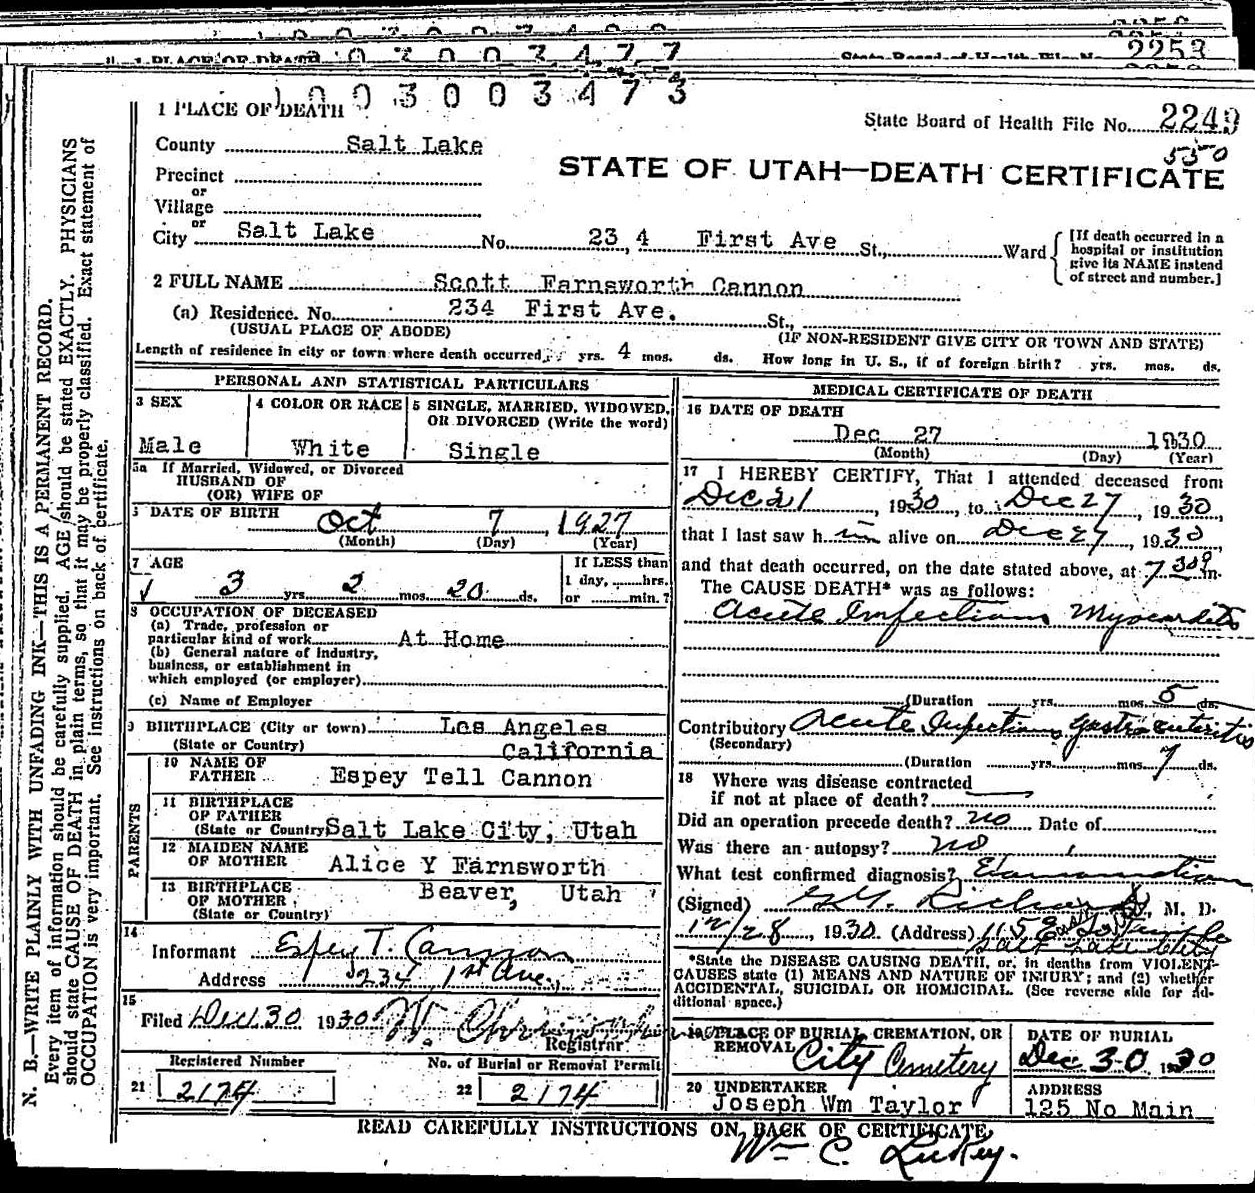 2253
1 PLACE OF DEATH
State Board of Health File No. 2249
550
STATE OF UTAH—DEATH CERTIFICATE
County Salt Lake
Precinct
or
Village
or
City Salt Lake No. 23,4 First Ave St., Ward
[If death occurred in a hospital or institution give its NAME instead of street and number.]
2 FULL NAME Scott Farnsworth Cannon
(a) Residence. No. 234 First Ave. St.,
(USUAL PLACE OF ABODE) (IF NON-RESIDENT GIVE CITY OR TOWN AND STATE)
Length of residence in city or town where death occurred yrs. 4 mos. ds. How long in U. S., if of foreign birth? yrs. mos. ds.
PERSONAL AND STATISTICAL PARTICULARS
3 SEX
Male
4 COLOR OR RACE
White
5 SINGLE, MARRIED, WIDOWED, OR DIVORCED (Write the word)
Single
5a If Married, Widowed, or Divorced
HUSBAND OF
(OR) WIFE OF
6 DATE OF BIRTH Oct 7 1927
(Month) (Day) (Year)
7 AGE
3 yrs. 2 mos. 20 ds.
If LESS than
1 day, hrs.
or min.?
8 OCCUPATION OF DECEASED
(a) Trade, profession or
particular kind of work At Home
(b) General nature of industry,
business, or establishment in
which employed (or employer)
(c) Name of Employer
9 BIRTHPLACE (City or town) Los Angeles
(State or Country) California
PARENTS
10 NAME OF
FATHER Espey Tell Cannon
11 BIRTHPLACE
OF FATHER
(State or Country) Salt Lake City, Utah
12 MAIDEN NAME
OF MOTHER Alice Y Farnsworth
13 BIRTHPLACE
OF MOTHER Beaver, Utah
(State or Country)
14
Informant Espey T. Cannon
Address 234 1st Ave.
15
Filed Dec 30 1930 W.
Registrar
Registered Number
21 2174
No. of Burial or Removal Permit
22 2174
MEDICAL CERTIFICATE OF DEATH
16 DATE OF DEATH
Dec 27 1930
(Month) (Day) (Year)
17 I HEREBY CERTIFY, That I attended deceased from
Dec 21, 1930, to Dec 27, 1930,
that I last saw him alive on Dec 27, 1930,
and that death occurred, on the date stated above, at 7 30 m.
The CAUSE DEATH* was as follows:
Acute Infectious Myocarditis
(Duration yrs. mos. 5 ds.
Contributory Acute Infectious Gastro enteritis
(Secondary)
(Duration yrs. mos. 7 ds.
18 Where was disease contracted
if not at place of death?
Did an operation precede death? no Date of
Was there an autopsy? no
What test confirmed diagnosis? Examination
(Signed) G.G. Richards, M. D.
12/28, 1930. (Address) 115 East So Temple
Salt Lake City
*State the DISEASE CAUSING DEATH, or, in deaths from VIOLENT
CAUSES state (1) MEANS AND NATURE OF INJURY; and (2) whether
ACCIDENTAL, SUICIDAL OR HOMICIDAL. (See reverse side for ad-
ditional space.)
19 PLACE OF BURIAL, CREMATION, OR
REMOVAL City Cemetery
DATE OF BURIAL
Dec 30, 1930
20 UNDERTAKER
Joseph Wm Taylor
ADDRESS
125 No Main
READ CAREFULLY INSTRUCTIONS ON BACK OF CERTIFICATE
Wm C.
N. B.—WRITE PLAINLY WITH UNFADING INK—THIS IS A PERMANENT RECORD.
Every item of information should be carefully supplied. AGE should be stated EXACTLY. PHYSICIANS
should state CAUSE OF DEATH in plain terms, so that it may be properly classified. Exact statement of
OCCUPATION is very important. See instructions on back of certificate.